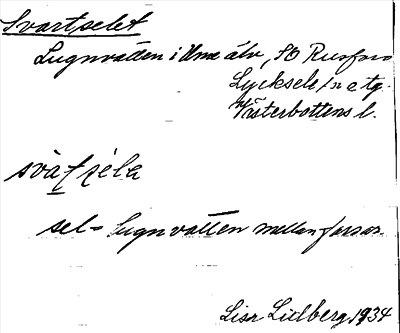 Svartselet
Lugnvatten i Ume älv, SO Rusfors
Lycksele
Västerbottens l.
svàtséla
sel = lugnvatten mellan forsar.
Lisa Lidberg 1934